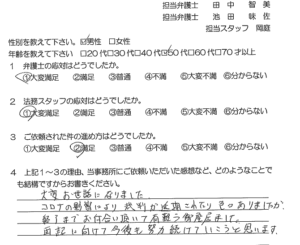 担当弁護士 田中 智美
担当弁護士 池田 味佐
担当スタッフ 岡庭
性別を教えて下さい。☑男性 □女性
年齢を教えて下さい。□20代□30代□40代☑50代□60代□70才以上
1 弁護士の応対はどうでしたか。
①大変満足 ②満足 ③普通 ④不満 ⑤大変不満 ⑥分からない
2 法務スタッフの応対はどうでしたか。
①大変満足 ②満足 ③普通 ④不満 ⑤大変不満 ⑥分からない
3 ご依頼された件の進め方はどうでしたか。
①大変満足 ②満足 ③普通 ④不満 ⑤大変不満 ⑥分からない
4 上記1～3の理由、当事務所にご依頼いただいた感想など、どのようなことで
も結構ですからお書きください。
大変お世話になりました。
コロナの影響により裁判が延期されたり色々ありましたが、
終了までお付合い頂いて有難う御座居ます。
再起に向けて今後も努力続けていこうと思います。